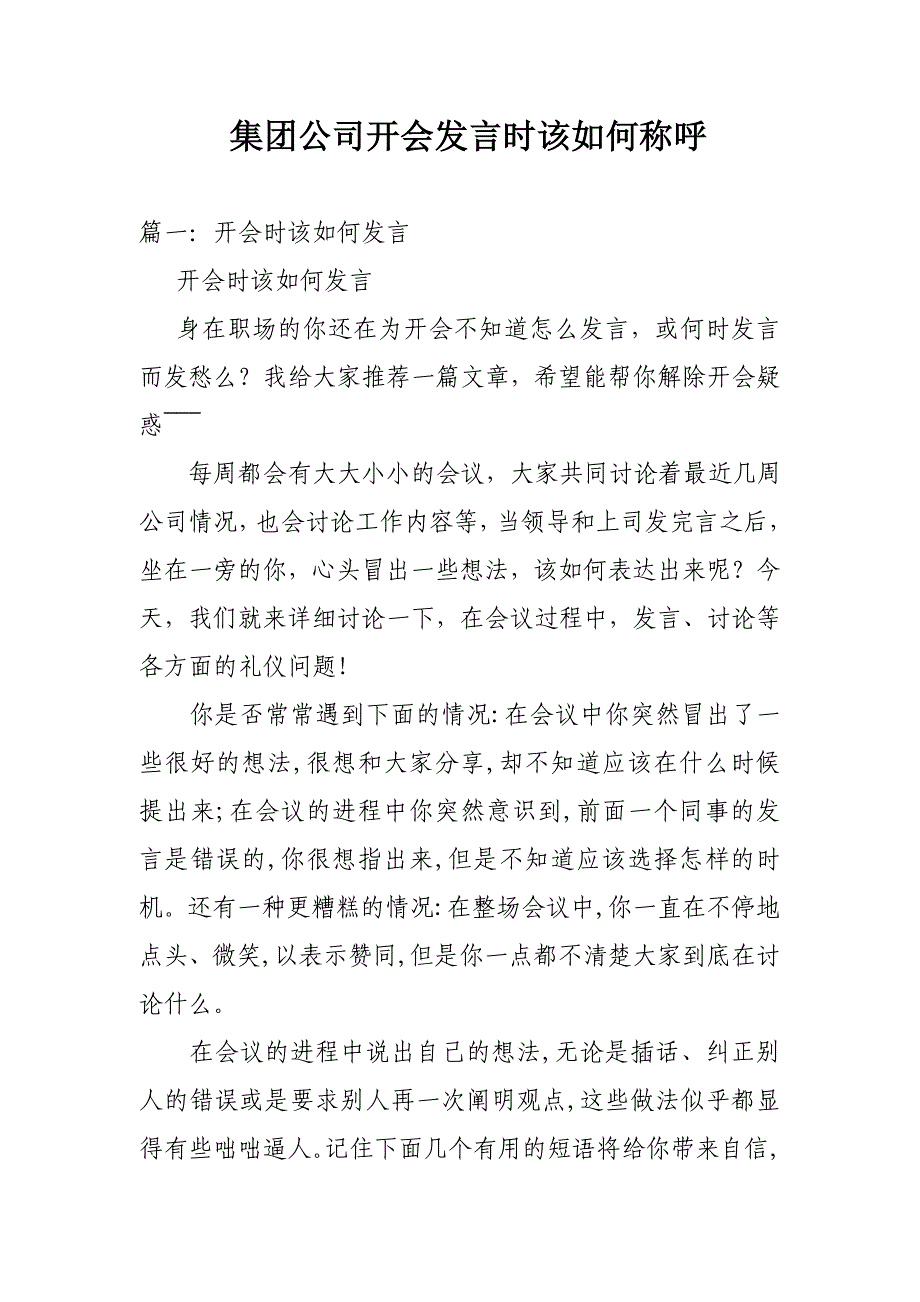 集团公司开会发言时该如何称呼
篇一：开会时该如何发言
开会时该如何发言
身在职场的你还在为开会不知道怎么发言，或何时发言
而发愁么？我给大家推荐一篇文章，希望能帮你解除开会疑
惑¯¯¯
每周都会有大大小小的会议，大家共同讨论着最近几周
公司情况，也会讨论工作内容等，当领导和上司发完言之后，
坐在一旁的你，心头冒出一些想法，该如何表达出来呢？今
天，我们就来详细讨论一下，在会议过程中，发言、讨论等
各方面的礼仪问题！
你是否常常遇到下面的情况:在会议中你突然冒出了一
些很好的想法,很想和大家分享,却不知道应该在什么时候
提出来;在会议的进程中你突然意识到,前面一个同事的发
言是错误的,你很想指出来,但是不知道应该选择怎样的时
机。还有一种更糟糕的情况:在整场会议中,你一直在不停地
点头、微笑,以表示赞同,但是你一点都不清楚大家到底在讨
论什么。
在会议的进程中说出自己的想法,无论是插话、纠正别
人的错误或是要求别人再一次阐明观点,这些做法似乎都显
得有些咄咄逼人。记住下面几个有用的短语将给你带来自信,